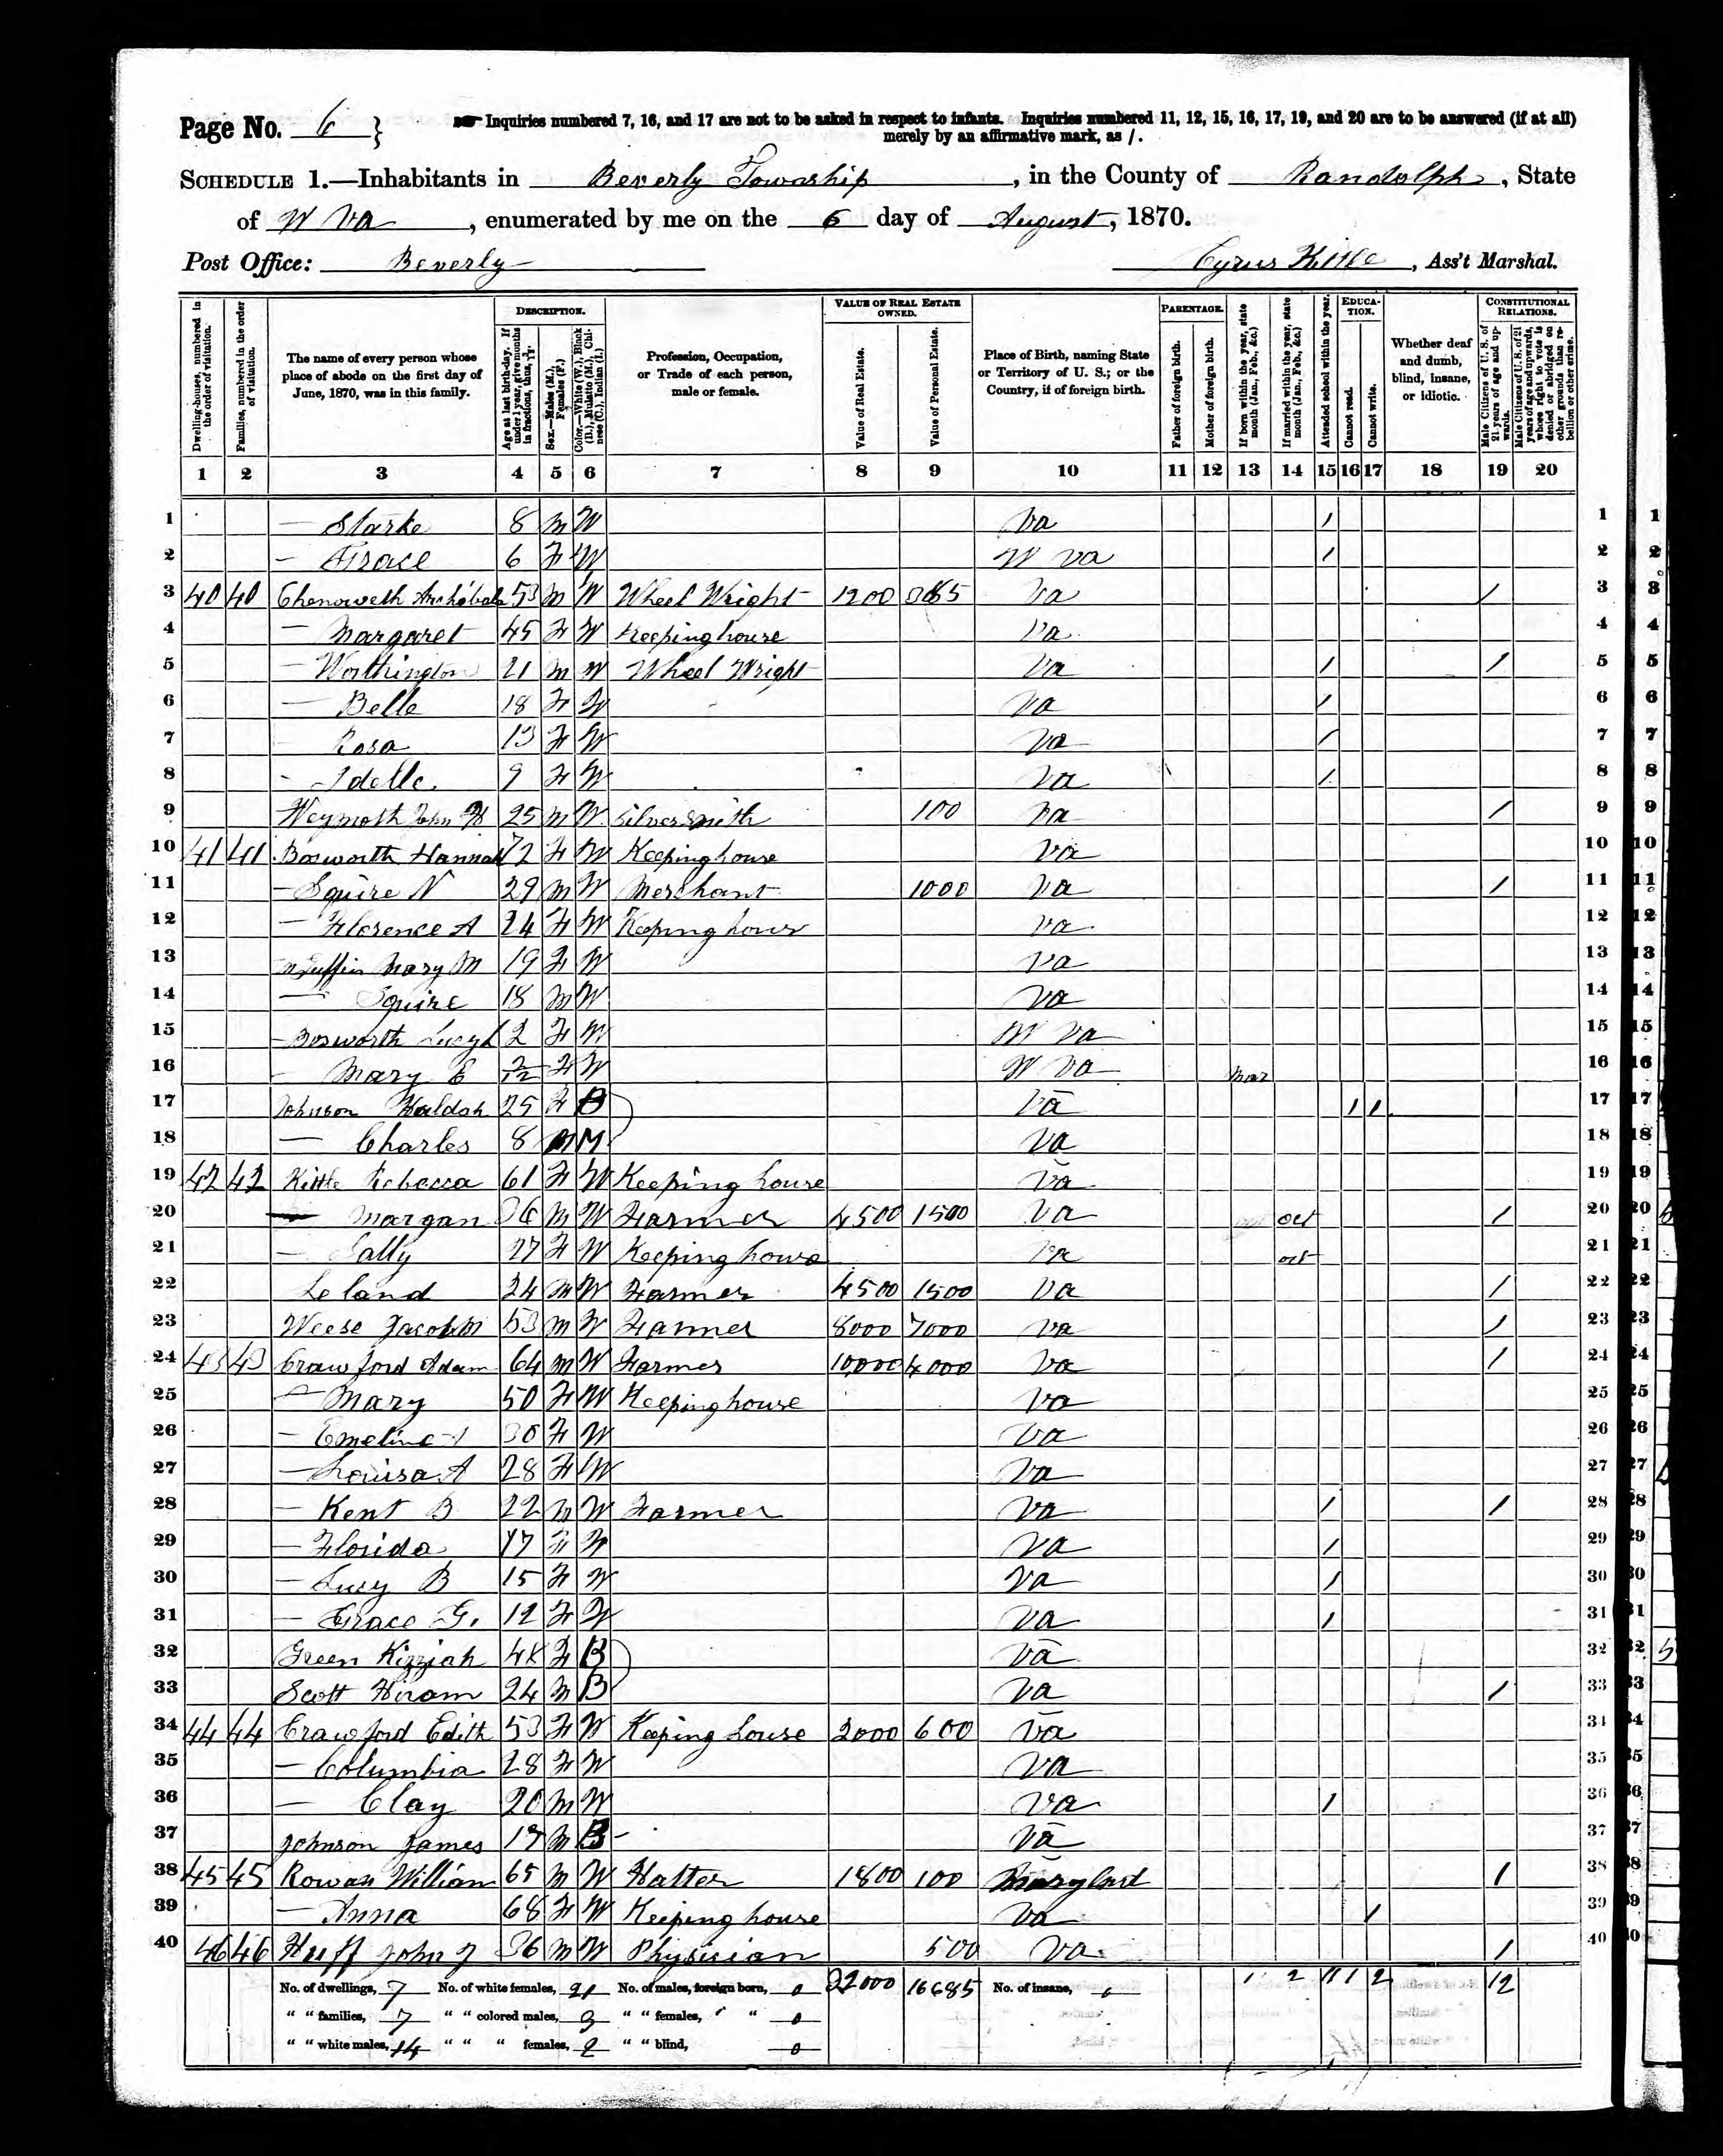 Page No. 6 } Inquiries numbered 7, 16, and 17 are not to be asked in respect to infants. Inquiries numbered 11, 12, 15, 16, 17, 19, and 20 are to be answered (if at all)
merely by an affirmative mark, as /.
SCHEDULE 1.—Inhabitants in Beverly Township, in the County of Randolph, State
of W Va, enumerated by me on the 6 day of August, 1870.
Post Office: Beverly Cyrus Kittle, Ass't Marshal.
Dwelling-houses, numbered in the order of visitation.
Families, numbered in the order of visitation.
The name of every person whose place of abode on the first day of June, 1870, was in this family.
DESCRIPTION.
Age at last birth-day. If under 1 year, give months in fractions, thus, 3/12.
Sex.—Males (M.), Females (F.)
Color.—White (W.), Black (B.), Mulatto (M.), Chinese (C.), Indian (I.)
Profession, Occupation, or Trade of each person, male or female.
VALUE OF REAL ESTATE OWNED.
Value of Real Estate.
Value of Personal Estate.
Place of Birth, naming State or Territory of U. S.; or the Country, if of foreign birth.
PARENTAGE.
Father of foreign birth.
Mother of foreign birth.
If born within the year, state month (Jan., Feb., &c.)
If married within the year, state month (Jan., Feb., &c.)
Attended school within the year.
EDUCATION.
Cannot read.
Cannot write.
Whether deaf and dumb, blind, insane, or idiotic.
CONSTITUTIONAL RELATIONS.
Male Citizens of U. S. of 21 years of age and upwards.
Male Citizens of U. S. of 21 years of age and upwards, whose right to vote is denied or abridged on other grounds than rebellion or other crime.
1 2 3 4 5 6 7 8 9 10 11 12 13 14 15 16 17 18 19 20
1 — Starke 8 M W Va / 1
2 — Grace 6 F W W Va / 2
3 40 40 Chenoweth Archibald 53 M W Wheel Wright 1200 Va / 3
4 — Margaret 45 F W Keeping house Va 4
5 — Worthington 21 M W Wheel Wright Va / / 5
6 — Belle 18 F W Va / 6
7 Rosa 13 F W Va / 7
8 - Idelle 9 F W Va / 8
9 Weymoth John H 25 M W Silver Smith 100 Va / 9
10 41 41 Bosworth Hannah 72 F W Keeping house Va 10
11 — Squire N 29 M W Merchant 1000 Va / 11
12 — Florence A 24 F W Keeping house Va 12
13 Mary M 19 F W Va 13
14 — Squire 18 M W Va 14
15 — Bosworth Lucy L 2 F W W Va 15
16 — Mary E F W W Va Mar 16
17 Johnson Huldah 25 F B Va / / 17
18 — Charles 8 M M Va 18
19 42 42 Kittle Rebecca 61 F W Keeping house Va 19
20 — Morgan 36 M W Farmer 4500 1500 Va oct / 20
21 — Sally 27 F W Keeping house Va oct 21
22 Leland 24 M W Farmer 4500 1500 Va / 22
23 Weese Jacob M 53 M W Farmer 8000 7000 Va / 23
24 43 43 Crawford Adam 64 M W Farmer 10,000 4000 Va / 24
25 — Mary 50 F W Keeping house Va 25
26 — Emeline 30 F W Va 26
27 — Louisa A 28 F W Va 27
28 — Kent B 22 M W Farmer Va / / 28
29 — Florida 17 F W Va / 29
30 — Lucy B 15 F W Va / 30
31 — Grace G. 12 F W Va / 31
32 Green Kizziah 48 F B Va 32
33 Scott Hiram 24 M B Va / 33
34 44 44 Crawford Edith 53 F W Keeping house 2000 600 Va 34
35 — Columbia 28 F W Va 35
36 — Clay 20 M W Va / 36
37 Johnson James 17 M B Va 37
38 45 45 Rowan William 65 M W Hatter 1800 100 Maryland / 38
39 — Anna 68 F W Keeping house Va / 39
40 46 46 Huff John J 36 M W Physician 500 Va / 40
No. of dwellings, 7 No. of white females, 21 No. of males, foreign born, 0 22000 16685 No. of insane, 0 1 2 11 1 2 12
" " families, 7 " " colored males, 3 " " females, " " 0
" " white males, 14 " " " females, 2 " " blind, 0